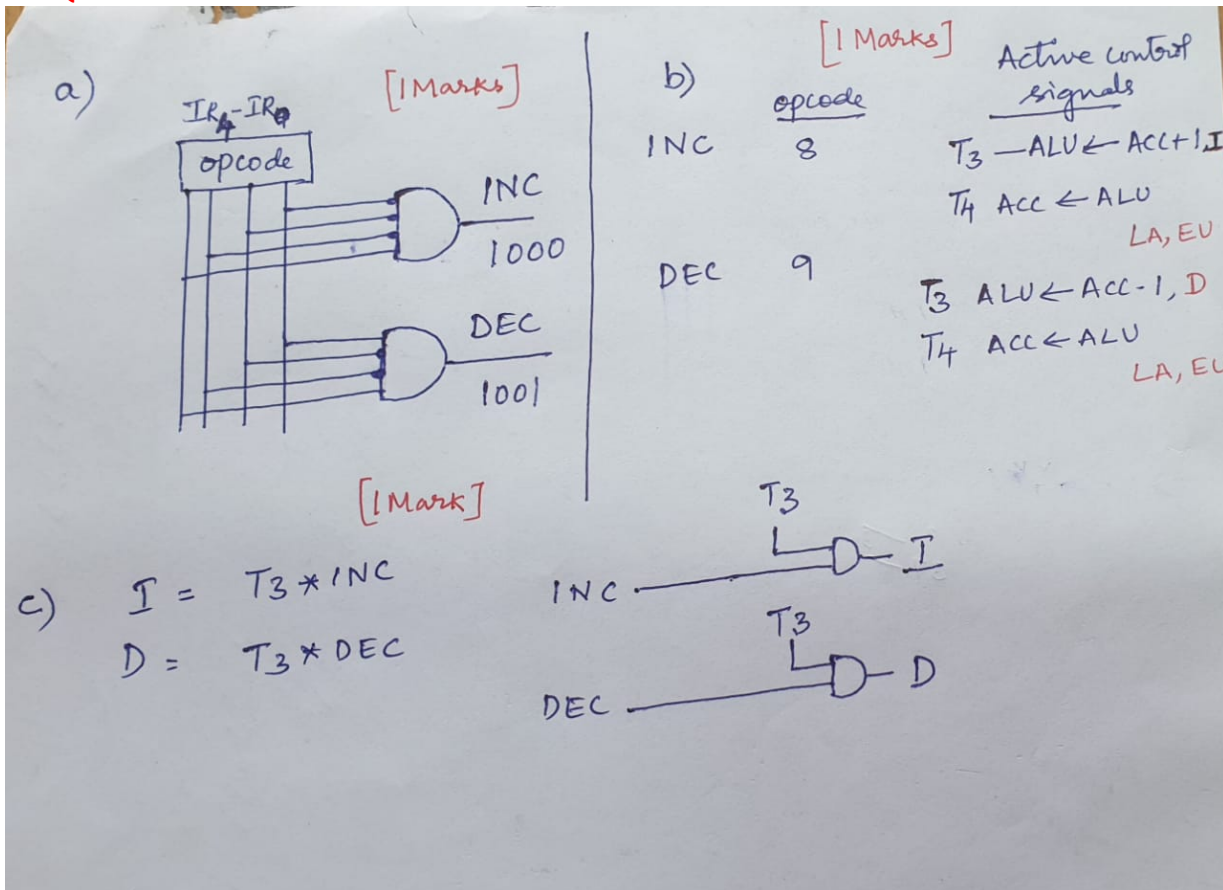 a)
[1Marks]
IR4-IR0
opcode
INC
1000
DEC
1001
b)
[1 Marks]
opcode
Active control
signals
INC 8 T3 —ALU← ACC+1,I
T4 ACC ← ALU
LA, EU
DEC 9 T3 ALU← ACC-1, D
T4 ACC ← ALU
LA, EU
[1 Mark]
c) I = T3 * INC
D = T3 * DEC
T3
INC
I
T3
DEC
D